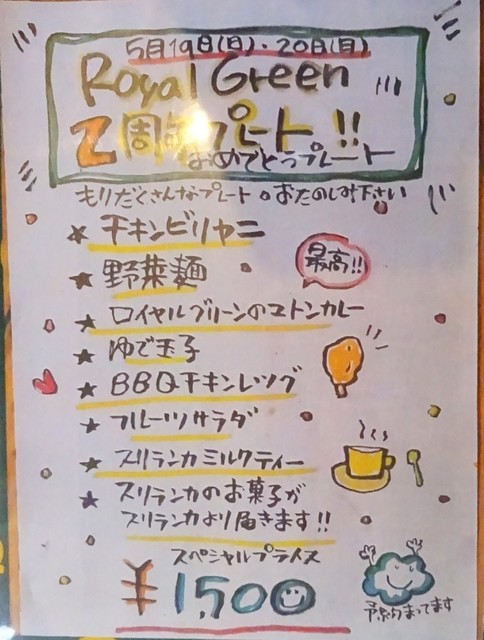 5月19日(日)・20日(月)
Royal Green
2周年プレート!!
おめでとうプレート
もりだくさんなプレート。おたのしみ下さい
★チキンビリヤニ
★野菜麺
最高!!
★ロイヤルグリーンのマトンカレー
★ゆで玉子
★BBQチキンレッグ
★フルーツサラダ
★スリランカミルクティー
★スリランカのお菓子が
スリランカより届きます!!
スペシャルプライス
¥1,500
予約うまってます